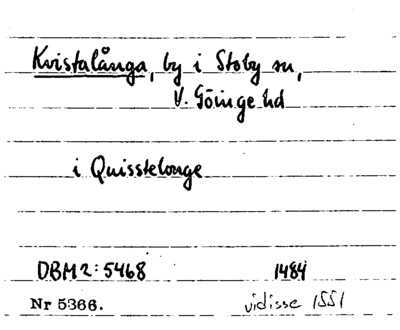 Kvistalånga, by i Stoby sn,
V. Göinge hd
i Quisstelonge
DBM 2:5468 1484
Nr 5366. vidisse 1551